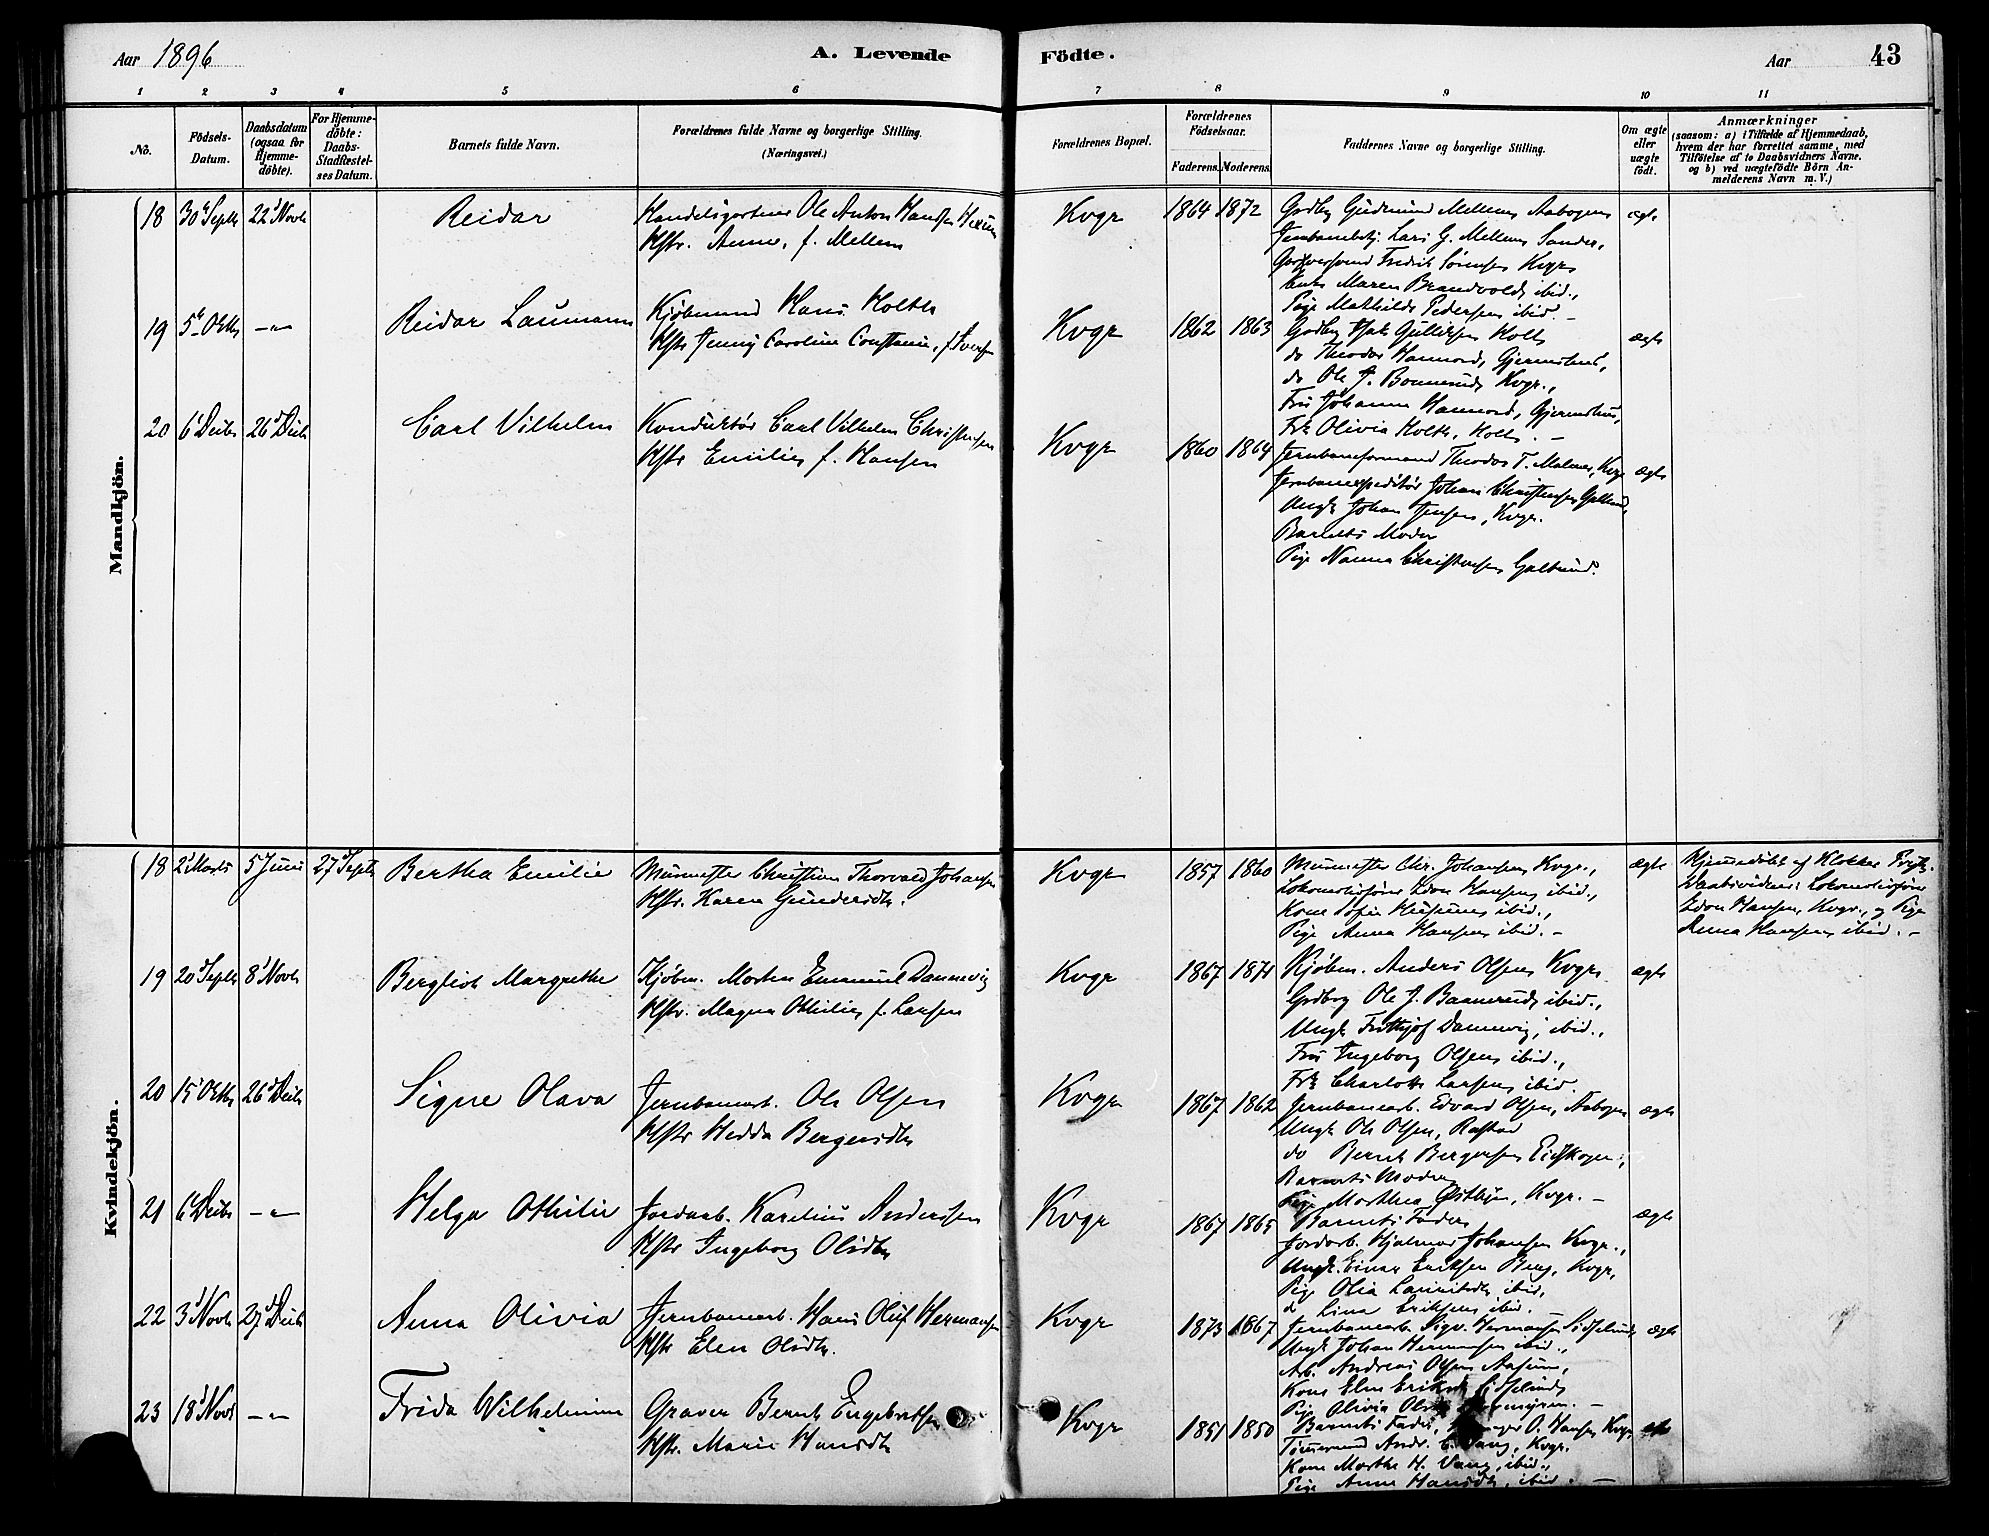 Aar 1896
A. Levende
Födte.
Aar
43
1 2 3 4 5 6 7 8 9 10 11
No.
Födsels-
Datum.
Daabsdatum
(ogsaa for
Hjemme-
döbte).
For Hjemme-
döbte:
Daabs-
Stadfæstel-
ses Datum.
Barnets fulde Navn.
Forældrenes fulde Navne og borgerlige Stilling.
(Næringsvei.)
Forældrenes Bopæl.
Forældrenes
Födselsaar.
Faderens. Moderens.
Faddernes Navne og borgerlige Stilling.
Om ægte
eller
uægte
födt.
Anmærkninger
(saasom: a) i Tilfælde af Hjemmedaab,
hvem der har forrettet samme, med
Tilföielse af to Daabsvidners Navne.
og b) ved uægtefödte Börn An-
melderens Navn m. V.)
Mandkjön.
18 30 Septb 22 Novb
Reidar
Handelsgartner Ole Anton Hansen
Hstr. Anne, f. Mellem
Kvgr
1864 1872
Gdbg Gudmund Mellem Aabogen
Jernbanebetj. Lars G. Mellem Sander,
Fredrik Sørensen Kvgr
Enke Maren Brandvold, ibid.,
Pige Mathilde Pedersen ibid. –
ægte
19 5 Octb —"—
Reidar Laumann
Kjøbmand Hans Holth
Hstr Jenny Caroline Constance, f. Iversen
Kvgr
1862 1863
Gdbg Gulliksen Holt
do Theodor Hannord, Gjermshus,
do Ole J. Bonnerud, Kvgr.,
Fru Johanne Hannord, Gjermshus,
Frk Olivia Holth, Holt. –
ægte
20 6 Decbr 26 Decb
Carl Vilhelm
Konduktør Carl Vilhelm Christensen
Hstr Emilie, f. Hansen
Kvgr
1860 1864
Jernbaneformand Theodor T. Malmer, Kvgr
Jernbaneexpeditør Johan Christensen Galterud,
Ungk Johan Jensen, Kvgr.
Barnets Moder
Pige Nanna Christensen Galterud.
ægte
Kvindekjön.
18 2 Marts 5 Juni 27 Septb
Bertha Emilie
Murmester Christian Thorvald Johansen
Hstr. Karen Gundersdtr.
Kvgr
1857 1860
Murmester Chr. Johansen Kvgr.,
Lokomotivfører Edon Hansen ibid.,
Kone Sofie ibid.,
Pige Anna Hansen ibid. –
ægte
Hjemmedøbt af Klokker
Daabsvidner: Lokomotivfører
Edon Hansen, Kvgr., og Pige
Anna Hansen ibid. –
19 20 Septb 8 Novb
Bergliot Margrethe
Kjøbm. Morten Emanuel Dannevig
Hstr. Magna Othilie, f. Larsen
Kvgr
1867 1871
Kjøbm. Anders Olsen Kvgr
Gdbg Ole J. Baanerud, ibid.,
Ungk Frithjof Dannevig, ibid.,
Fru Ingeborg Olsen ibid.,
Frk Charlotte Larsen ibid.
ægte
20 15 Octb 26 Decb
Signe Olava
Jernbanearb. Ole Olsen
Hstr Hedda Bergersdtr
Kvgr
1867 1862
Jernbanearb. Edvard Olsen, Aabogen
Ungk Ole Olsen, Rastad
do Bernt Bergersen Eidskogen,
Barnets Moder
Pige Marthea Østbye, Kvgr. –
ægte
21 6 Decbr —"—
Helga Othilie
Jordarb. Karelius Andersen
Hstr Ingeborg Olsdtr
Kvgr
1867 1865
Barnets Fader
Jordarb. Hjalmar Johansen Kvgr.,
Ungk. Einar Eriksen Berg, Kvgr,
Pige Olia Lauritsdtr ibid.,
d Lina Eriksen ibid.
ægte
22 3 Novb 27 Decb
Anna Olivia
Jernbanearb. Hans Oluf Hermansen
Hstr Elen Olsdtr.
Kvgr
1873 1867
Jernbanearb. Sigv. Hermansen Sidselrud,
Ungk Johan Hermansen ibid.,
Arb. Andreas Olsen Aasum,
Kone Elen Eriksen Sidselrud,
Pige Olivia
ægte
23 18 Novb —"—
Frida Wilhelmine
Graver Bernt Engebretsen
Hstr. Marie Hansdtr
Kvgr
1851 1850
Barnets Fader, O. Hansen Kvgr
Tømmermand Andr. E. Vang, Kvgr.
Kone Marthe H. Vang, ibid.,
Pige Anne Hansdtr, ibid. –